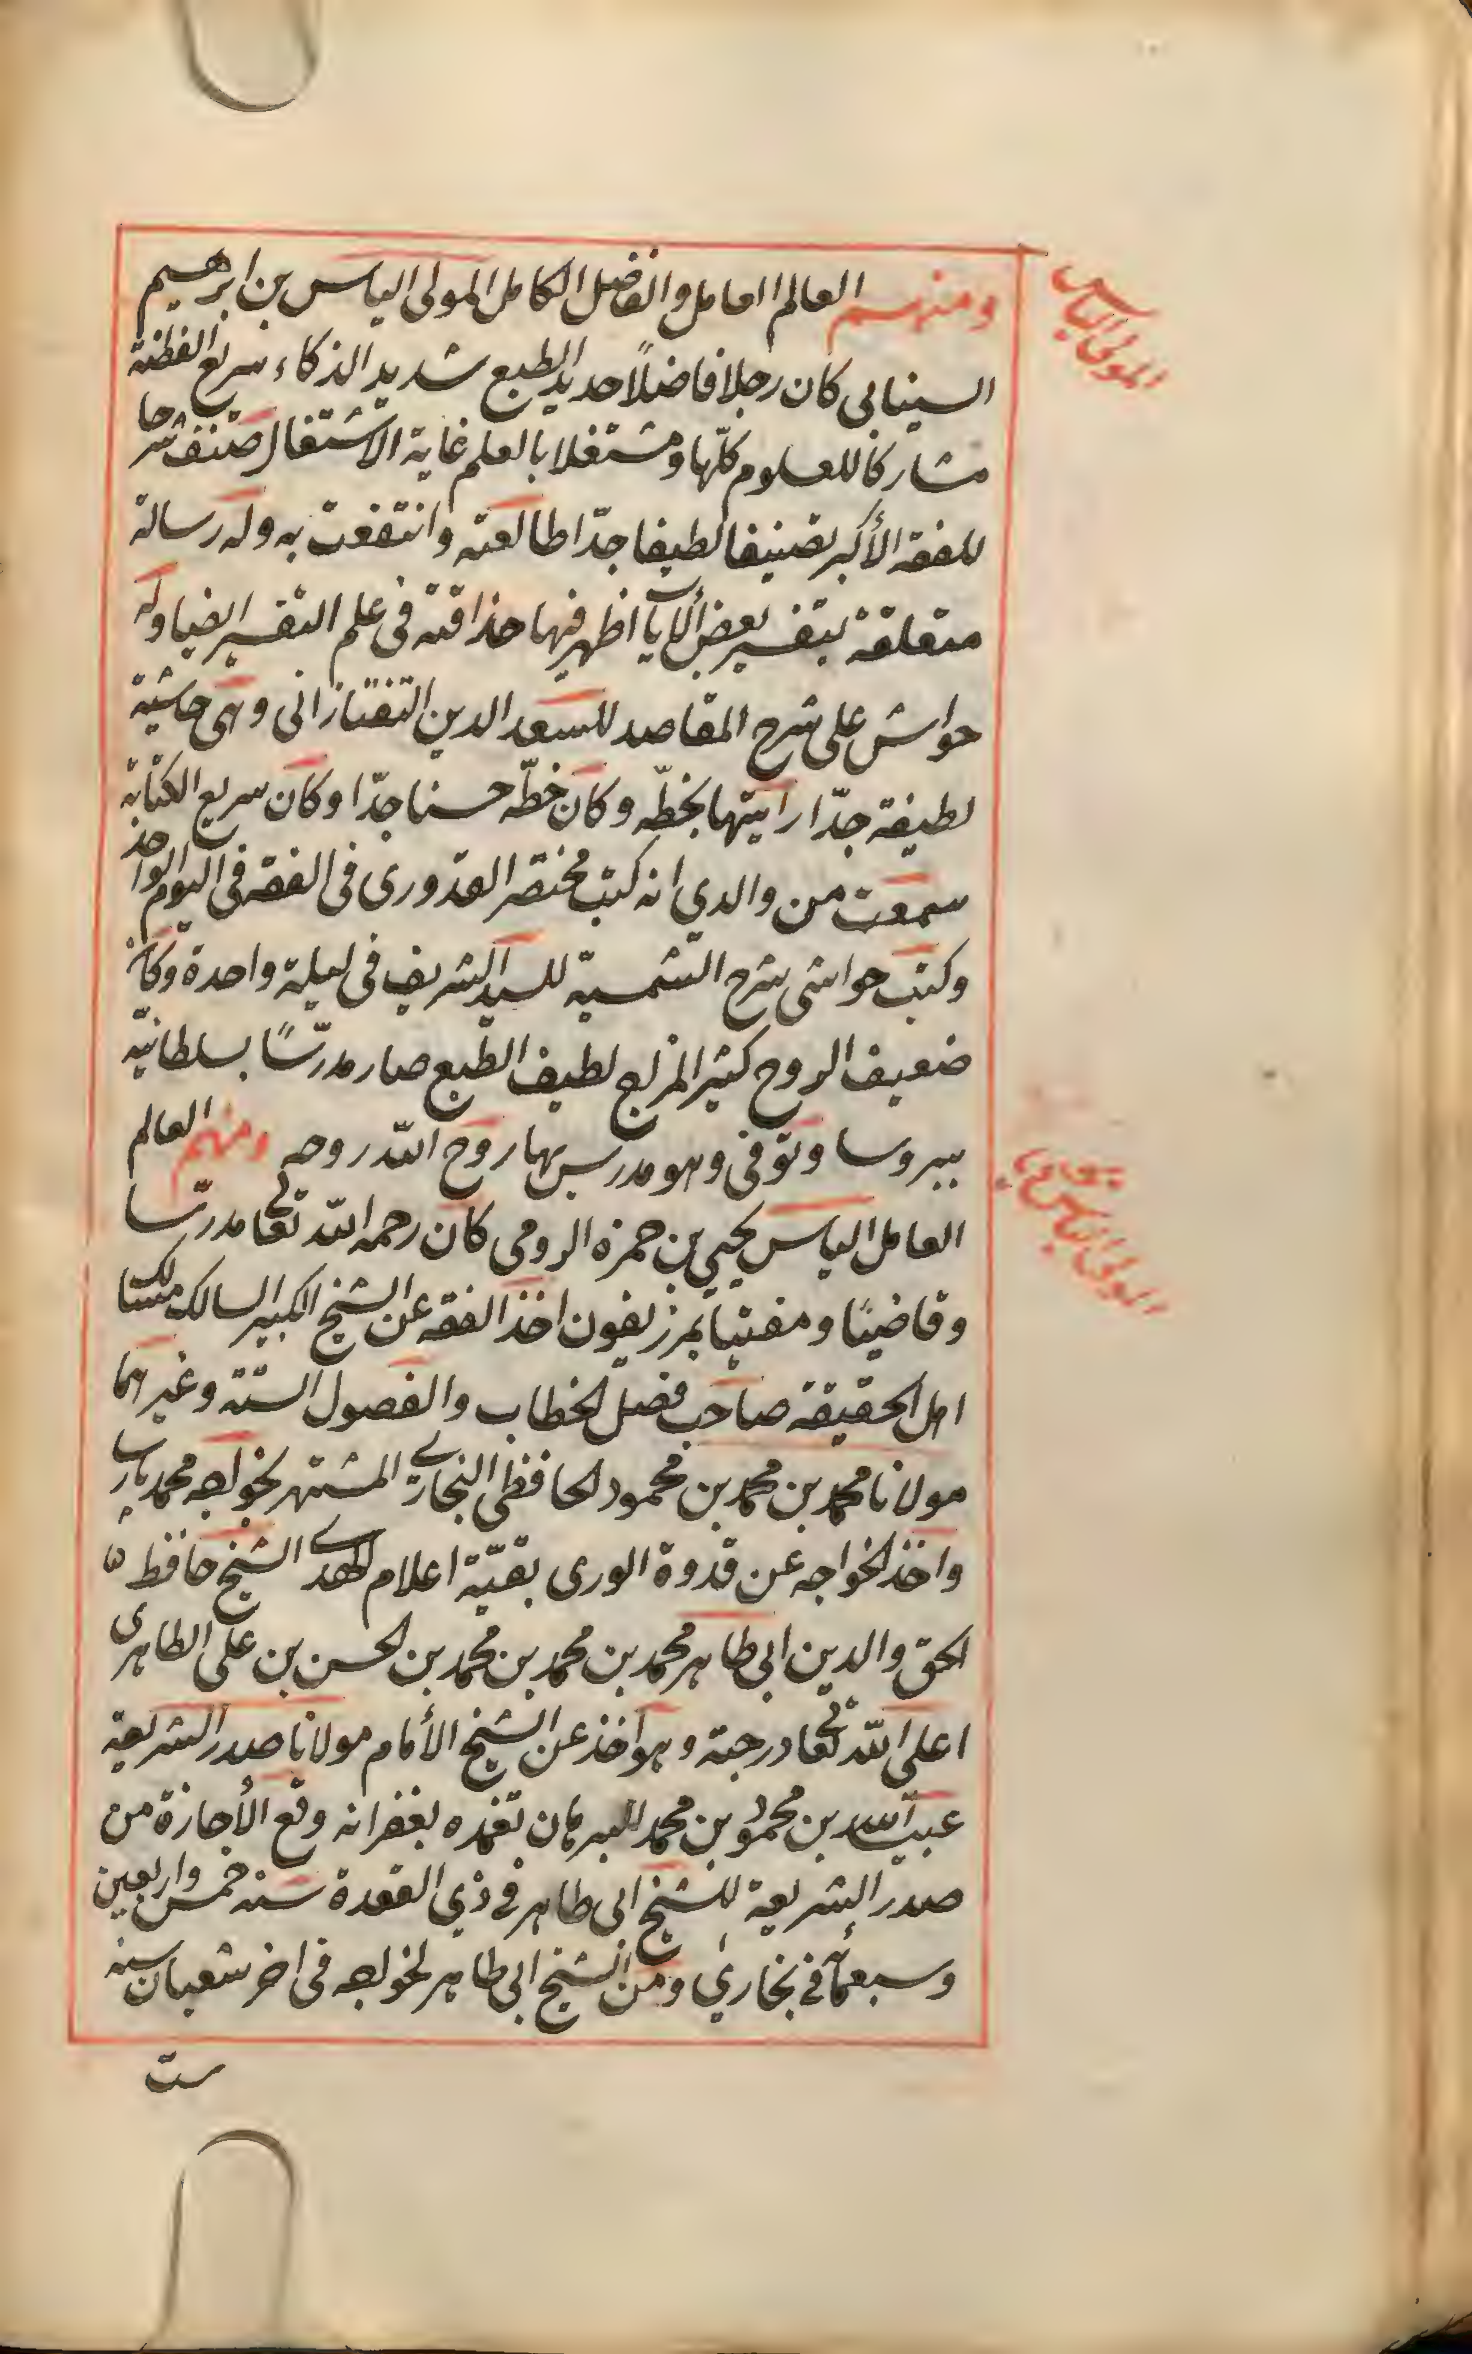 ومنهم العالم العامل والفاضل الكامل المولى الياس بن ابرهيم
السينابى كان رجلا فاضلاً حديد الطبع شديد الذكاء سريع الفطنة
مشاركا للعلوم كلّها ومشتغلا بالعلم غاية الاشتغال صنف شرحا
للفقه الأكبر تصنيفا لطيفا جدّا طالعته وانتفعت به وله رسالة
متعلقة بتفسير بعض الآيا اظهر فيها حذاقته فى علم التفسير ايضا وله
حواش على شرح المقاصد للسعد الدين التفتازانى وهى حاشية
لطيفة جدّا رايتها بخطّه وكان خطّه حسنا جدّا وكان سريع الكتابة
سمعت من والدي انه كتب مختصر القدورى فى الفقه فى اليوم الواحد
وكتب حواشى شرح الشمسية للسيد الشريف فى ليلة واحدة وكان
ضعيف الروح كثير المزاح لطيف الطبع صار مدرّسًا بسلطانيّة
ببروسا وتوفى وهو مدرس بها روح الله روحه ومنهم العالم
العامل الياس يحيى بن حمزه الرومى كان رحمه الله تعا مدرّسا
وقاضيًا ومفتيا بمرزيفون اخذ الفقه عن الشيخ الكبير السالك مسالك
اهل الحقيقة صاحب فصل الخطاب والفصول الستة وغيرهما
مولانا محمد بن محمد بن محمود الحافظى البخاري المشتهر بخواجه محمد پارسا
واخذ الخواجه عن قدوة الورى بقيّة اعلام الهدى الشيخ حافظ
الحق والدين ابى طاهر محمد بن محمد بن محمد بن الحسن بن على الطاهرى
اعلى الله تعا درجته وهو اخذ عن الشيخ الأمام مولانا صدر الشريعة
عبيد الله بن محمود بن محمد البرهان تغمده بغفرانه وقع الأجازة من
صدر الشريعة للشيخ ابى طاهر في ذي القعدة سنة خمس واربعين
وسبعمأة في بخاري ومن الشيخ ابى طاهر لخواجه فى اخر شعبان سنه
ست
المولى الياس
المولى الياس